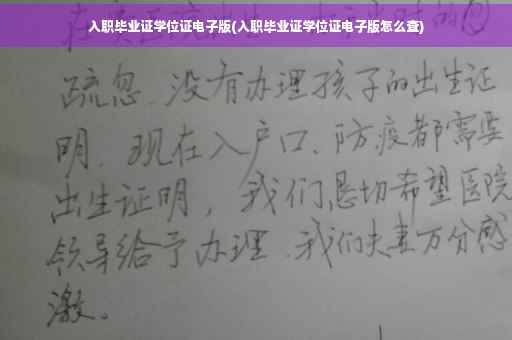 入职毕业证学位证电子版(入职毕业证学位证电子版怎么查)
疏忽、没有办理孩子的出生证
明、现在入户口、防疫都需要
出生证明，我们恳切希望医院
领导给予办理、我们夫妻万分感
激。